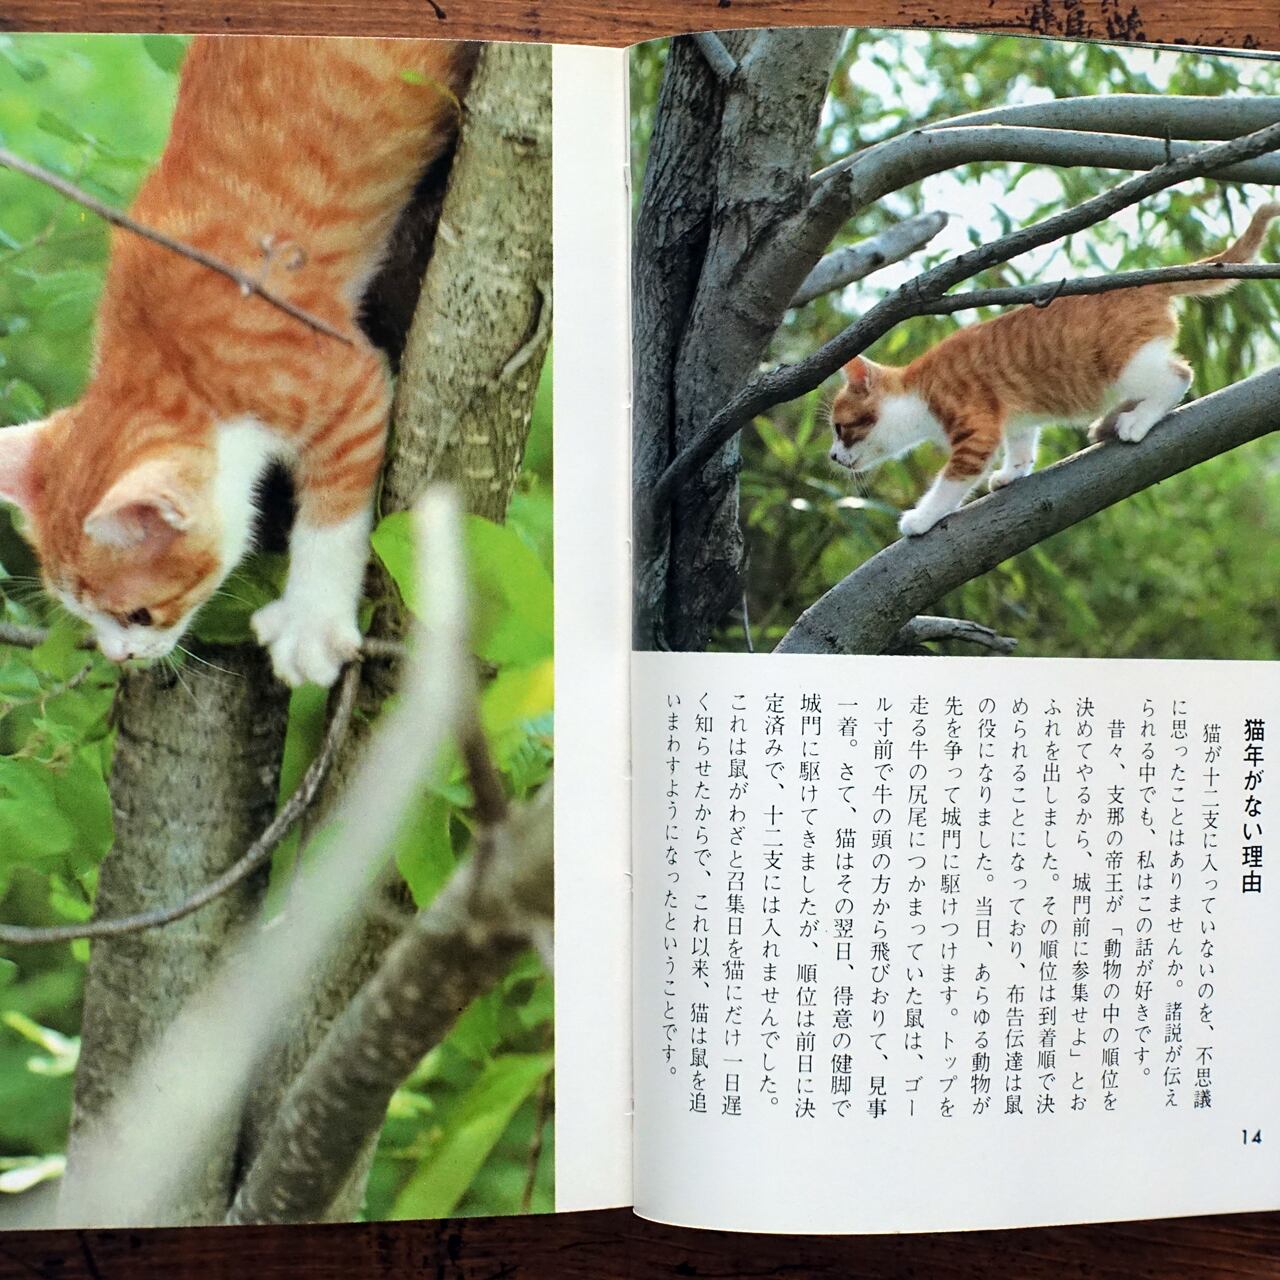 猫年がない理由
猫が十二支に入っていないのを、不思議
に思ったことはありませんか。諸説が伝え
られる中でも、私はこの話が好きです。
昔々、支那の帝王が「動物の中の順位を
決めてやるから、城門前に参集せよ」とお
ふれを出しました。その順位は到着順で決
められることになっており、布告伝達は鼠
の役になりました。当日、あらゆる動物が
先を争って城門に駆けつけます。トップを
走る牛の尻尾につかまっていた鼠は、ゴー
ル寸前で牛の頭の方から飛びおりて、見事
一着。さて、猫はその翌日、得意の健脚で
城門に駆けてきましたが、順位は前日に決
定済みで、十二支には入れませんでした。
これは鼠がわざと召集日を猫にだけ一日遅
く知らせたからで、これ以来、猫は鼠を追
いまわすようになったということです。
14